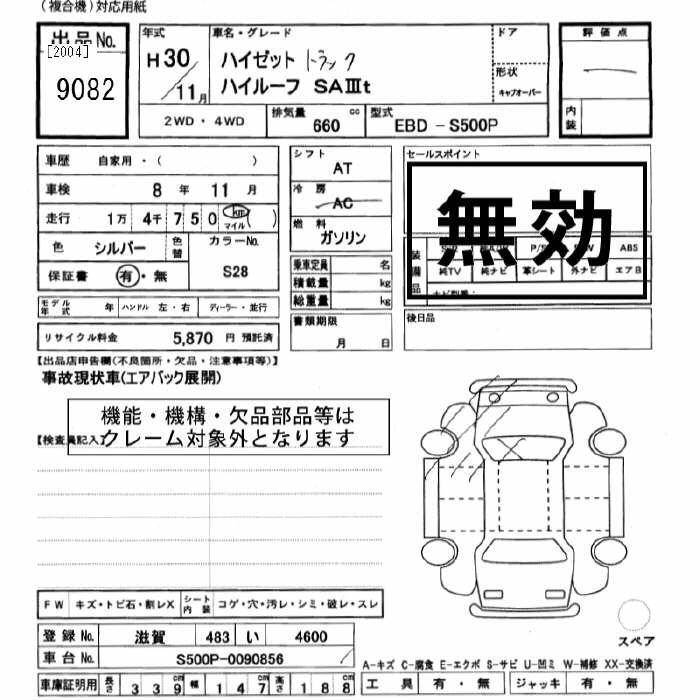 (複合機)対応用紙
出品No. 年式 車名・グレード ドア 評価点
[2004]
9082
H30/11月
ハイゼット トラック
ハイルーフ SAⅢt
形状
キャブオーバー
内装
2WD・4WD 排気量 660 cc 型式 EBD－S500P
車歴 自家用・( )
車検 8年 11月
走行 1万 4千 7 5 0 km マイル ( )
色 シルバー 色替 カラーNo. S28
保証書 有・無
モデル年式 年 ハンドル 左・右 ディーラー・並行
リサイクル料金 5,870 円 預託済
シフト AT
冷房 AC
燃料 ガソリン
乗車定員 名
積載量 kg
総重量 kg
書類期限 月 日
セールスポイント
無効
装備品 P/S ABS
純TV 純ナビ 革シート 外ナビ エアB
後日品
【出品店申告欄(不良箇所・欠品・注意事項等)】
事故現状車(エアバック展開)
機能・機構・欠品部品等は
クレーム対象外となります
【検査員記入】
FW キズ・トビ石・割レX シート内装 コゲ・穴・汚レ・シミ・破レ・スレ
登録No. 滋賀 483 い 4600
車台No. S500P-0090856
車庫証明用 長さ 339cm 幅 147cm 高さ 188cm
スペア
A-キズ C-腐食 E-エクボ S-サビ U-凹ミ W-補修 XX-交換済
工具 有・無 ジャッキ 有・無